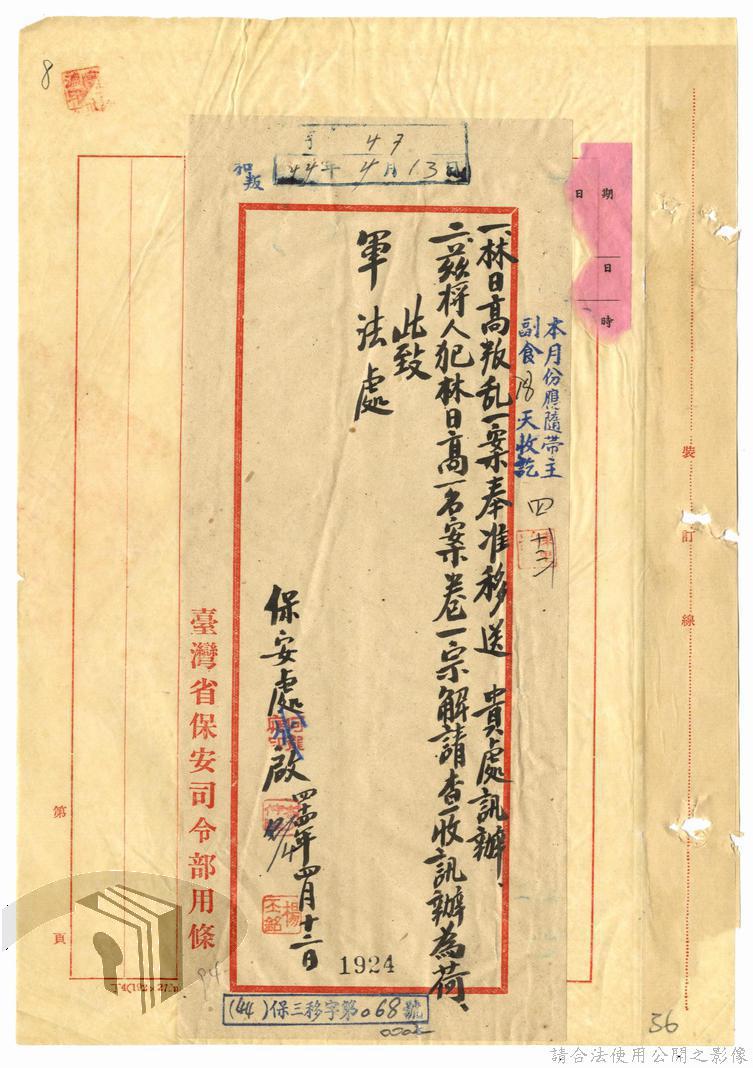 8
44年4月13日
和叛
期
日
日
時
本月份應隨帶主
副食18天收訖
四
一、林日高叛乱一案奉准移送 貴處訊辦、
二、茲将人犯林日高一名案卷一宗解請查收訊辦為荷、
此致
軍法處
保安處 啟
四四年四月十二日
楊丕銘
1924
臺灣省保安司令部用條
(44)保三移字第068號
裝訂線
第
頁
94
36
請合法使用公開之影像